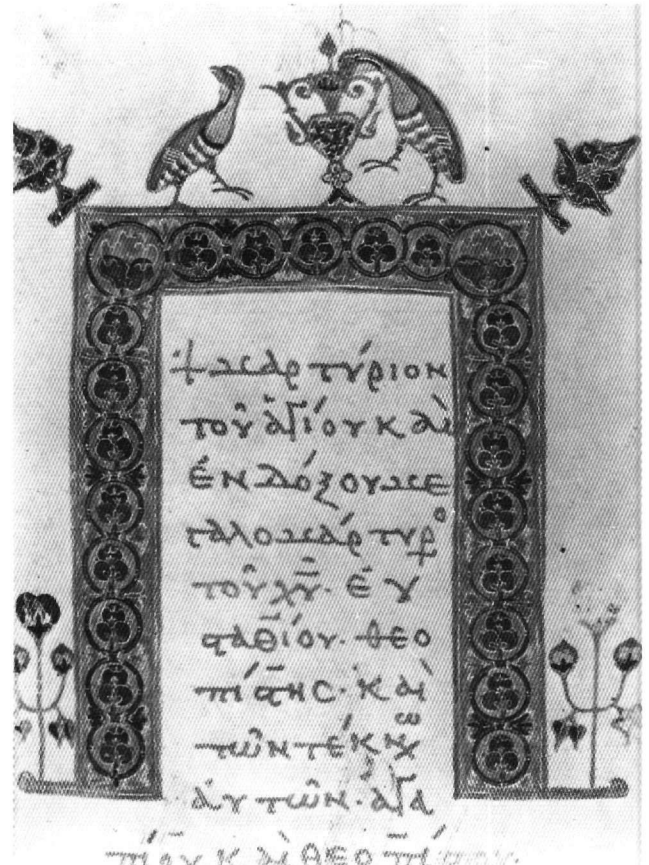 † μαρτύριον
τοῦ ἁγίου καὶ
ἐνδόξου με
γαλομάρτυρο
τοῦ χ̅υ̅· ἐυ
σταθίου· θεο
πίστης· καὶ
τῶν τέκνων
ἀυτῶν· ἀγα
πίου καὶ θεοπίστου